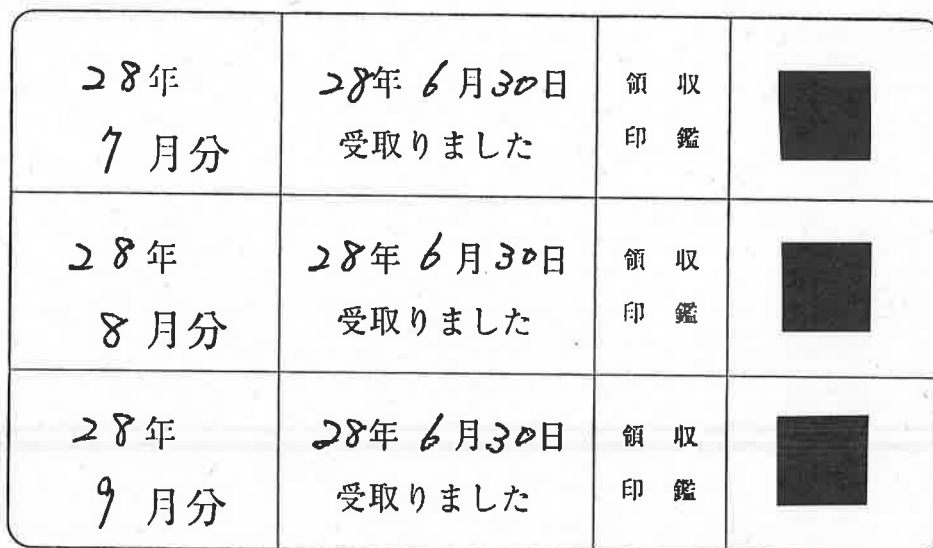 28年
7月分
28年6月30日
受取りました
領収
印鑑
28年
8月分
28年6月30日
受取りました
領収
印鑑
28年
9月分
28年6月30日
受取りました
領収
印鑑